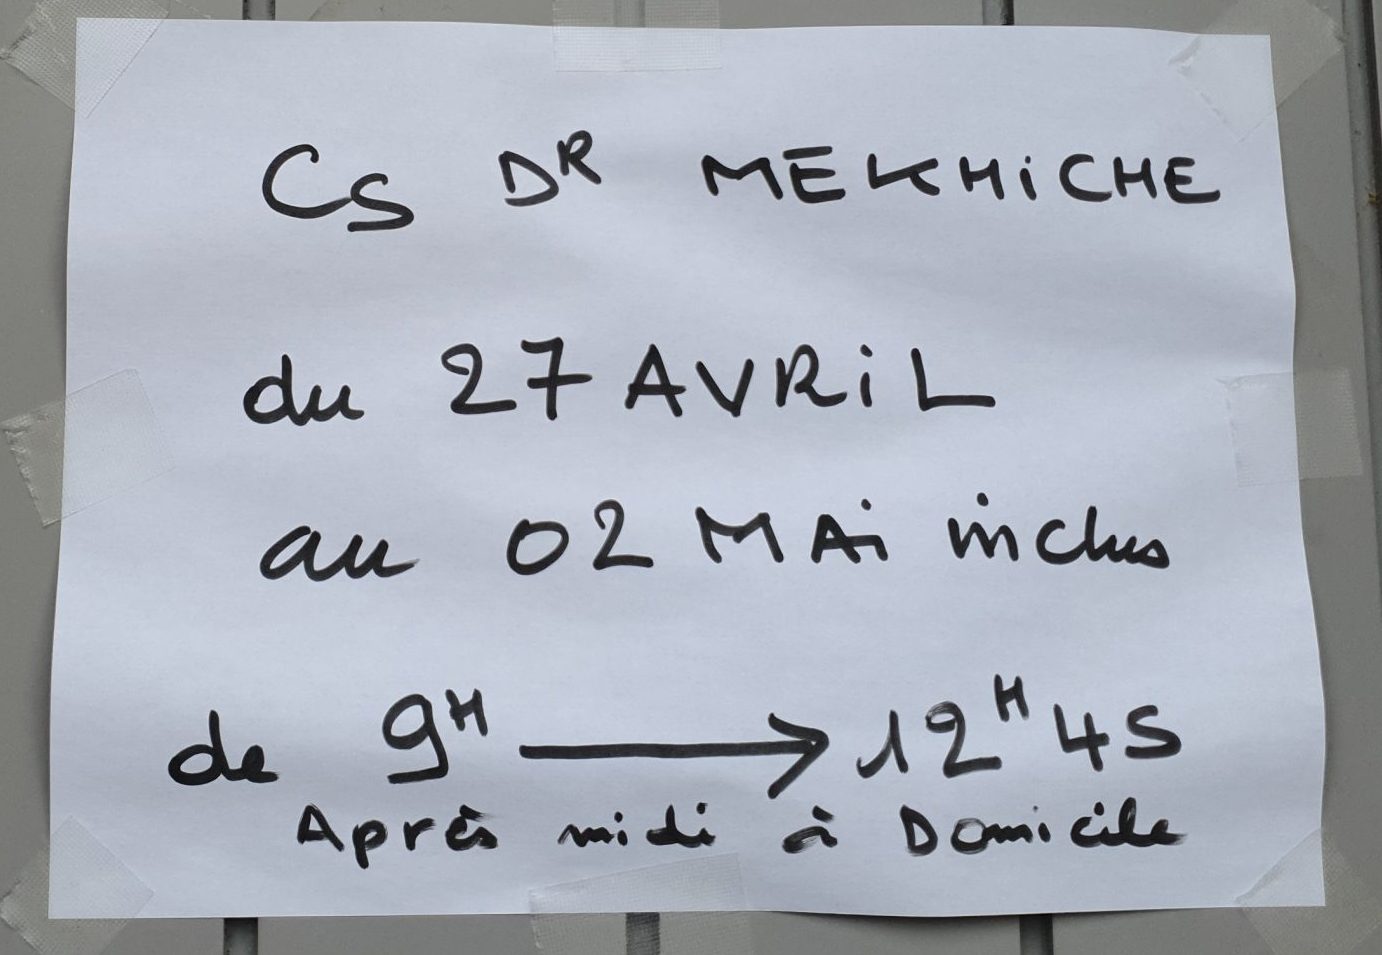 Cs DR MEKHiCHE
du 27 AVRiL
au 02 MAi inclus
de 9H → 12H45
Après midi à Domicile